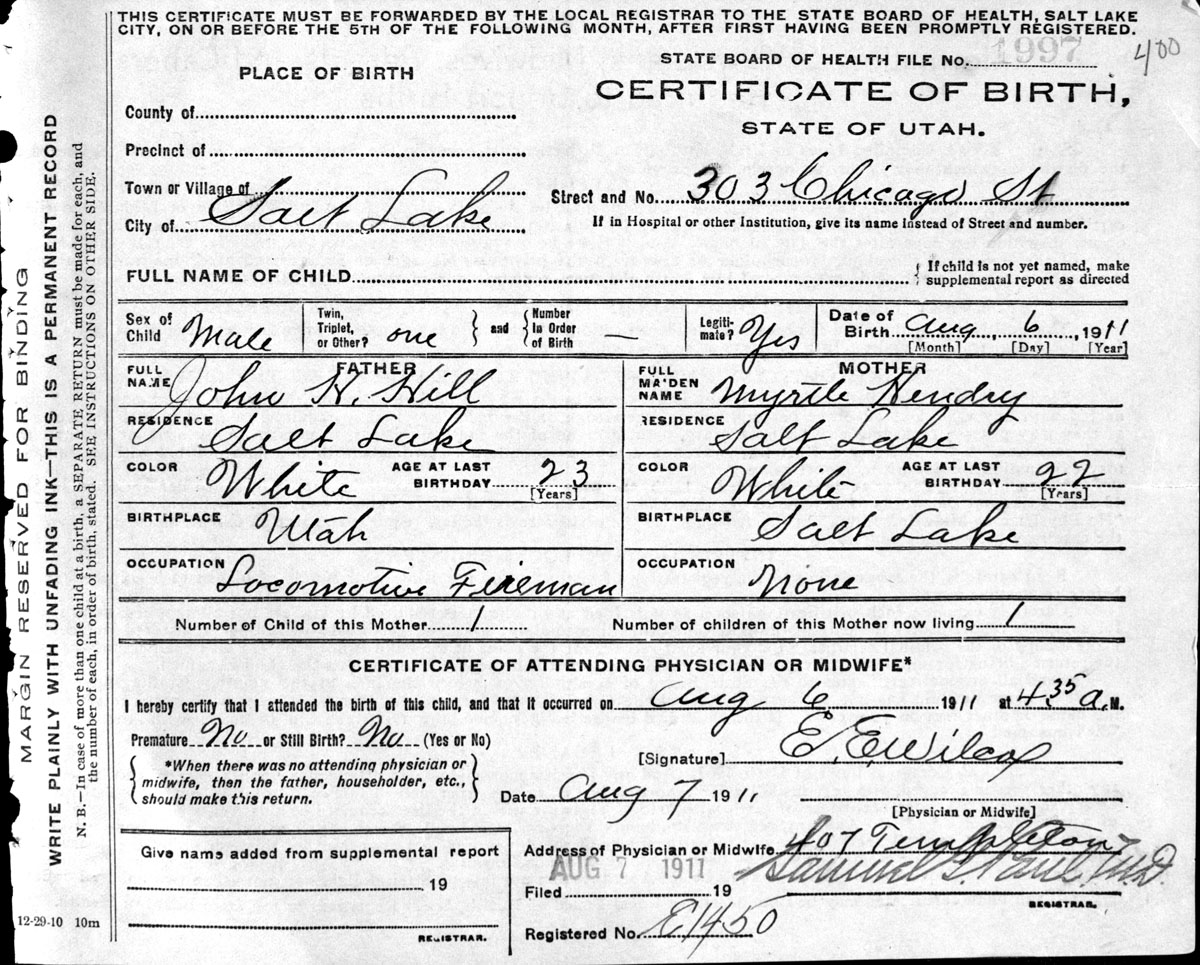 THIS CERTIFICATE MUST BE FORWARDED BY THE LOCAL REGISTRAR TO THE STATE BOARD OF HEALTH, SALT LAKE
CITY, ON OR BEFORE THE 5TH OF THE FOLLOWING MONTH, AFTER FIRST HAVING BEEN PROMPTLY REGISTERED.
400
STATE BOARD OF HEALTH FILE No. 1997
PLACE OF BIRTH
CERTIFICATE OF BIRTH,
STATE OF UTAH.
County of
Precinct of
Town or Village of
City of Salt Lake
Street and No. 303 Chicago St
If in Hospital or other Institution, give its name instead of Street and number.
FULL NAME OF CHILD
{ If child is not yet named, make
supplemental report as directed
Sex of Child Male
Twin, Triplet, or Other? one } and { Number in Order of Birth —
Legiti-mate? Yes
Date of Birth Aug 6, 1911
[Month] [Day] [Year]
FATHER
FULL NAME John H. Hill
RESIDENCE Salt Lake
COLOR White AGE AT LAST BIRTHDAY 23
[Years]
BIRTHPLACE Utah
OCCUPATION Locomotive Fireman
MOTHER
FULL MAIDEN NAME Myrtle Hendry
RESIDENCE Salt Lake
COLOR White AGE AT LAST BIRTHDAY 22
[Years]
BIRTHPLACE Salt Lake
OCCUPATION None
Number of Child of this Mother 1 Number of children of this Mother now living 1
CERTIFICATE OF ATTENDING PHYSICIAN OR MIDWIFE*
I hereby certify that I attended the birth of this child, and that it occurred on Aug 6 1911 at 4 35 a. M.
Premature No or Still Birth? No (Yes or No)
{ *When there was no attending physician or
midwife, then the father, householder, etc.,
should make this return. }
[Signature] E. E. Wilcox
Date Aug 7 1911
[Physician or Midwife]
Address of Physician or Midwife 407 Templeton
Give name added from supplemental report
19
REGISTRAR.
AUG 7 1911
Filed 19
Samuel G. Paul, M.D.
REGISTRAR.
Registered No. E1450
12-29-10 10m
MARGIN RESERVED FOR BINDING
WRITE PLAINLY WITH UNFADING INK—THIS IS A PERMANENT RECORD
N. B.—In case of more than one child at a birth, a SEPARATE RETURN must be made for each, and
the number of each, in order of birth, stated. SEE INSTRUCTIONS ON OTHER SIDE.